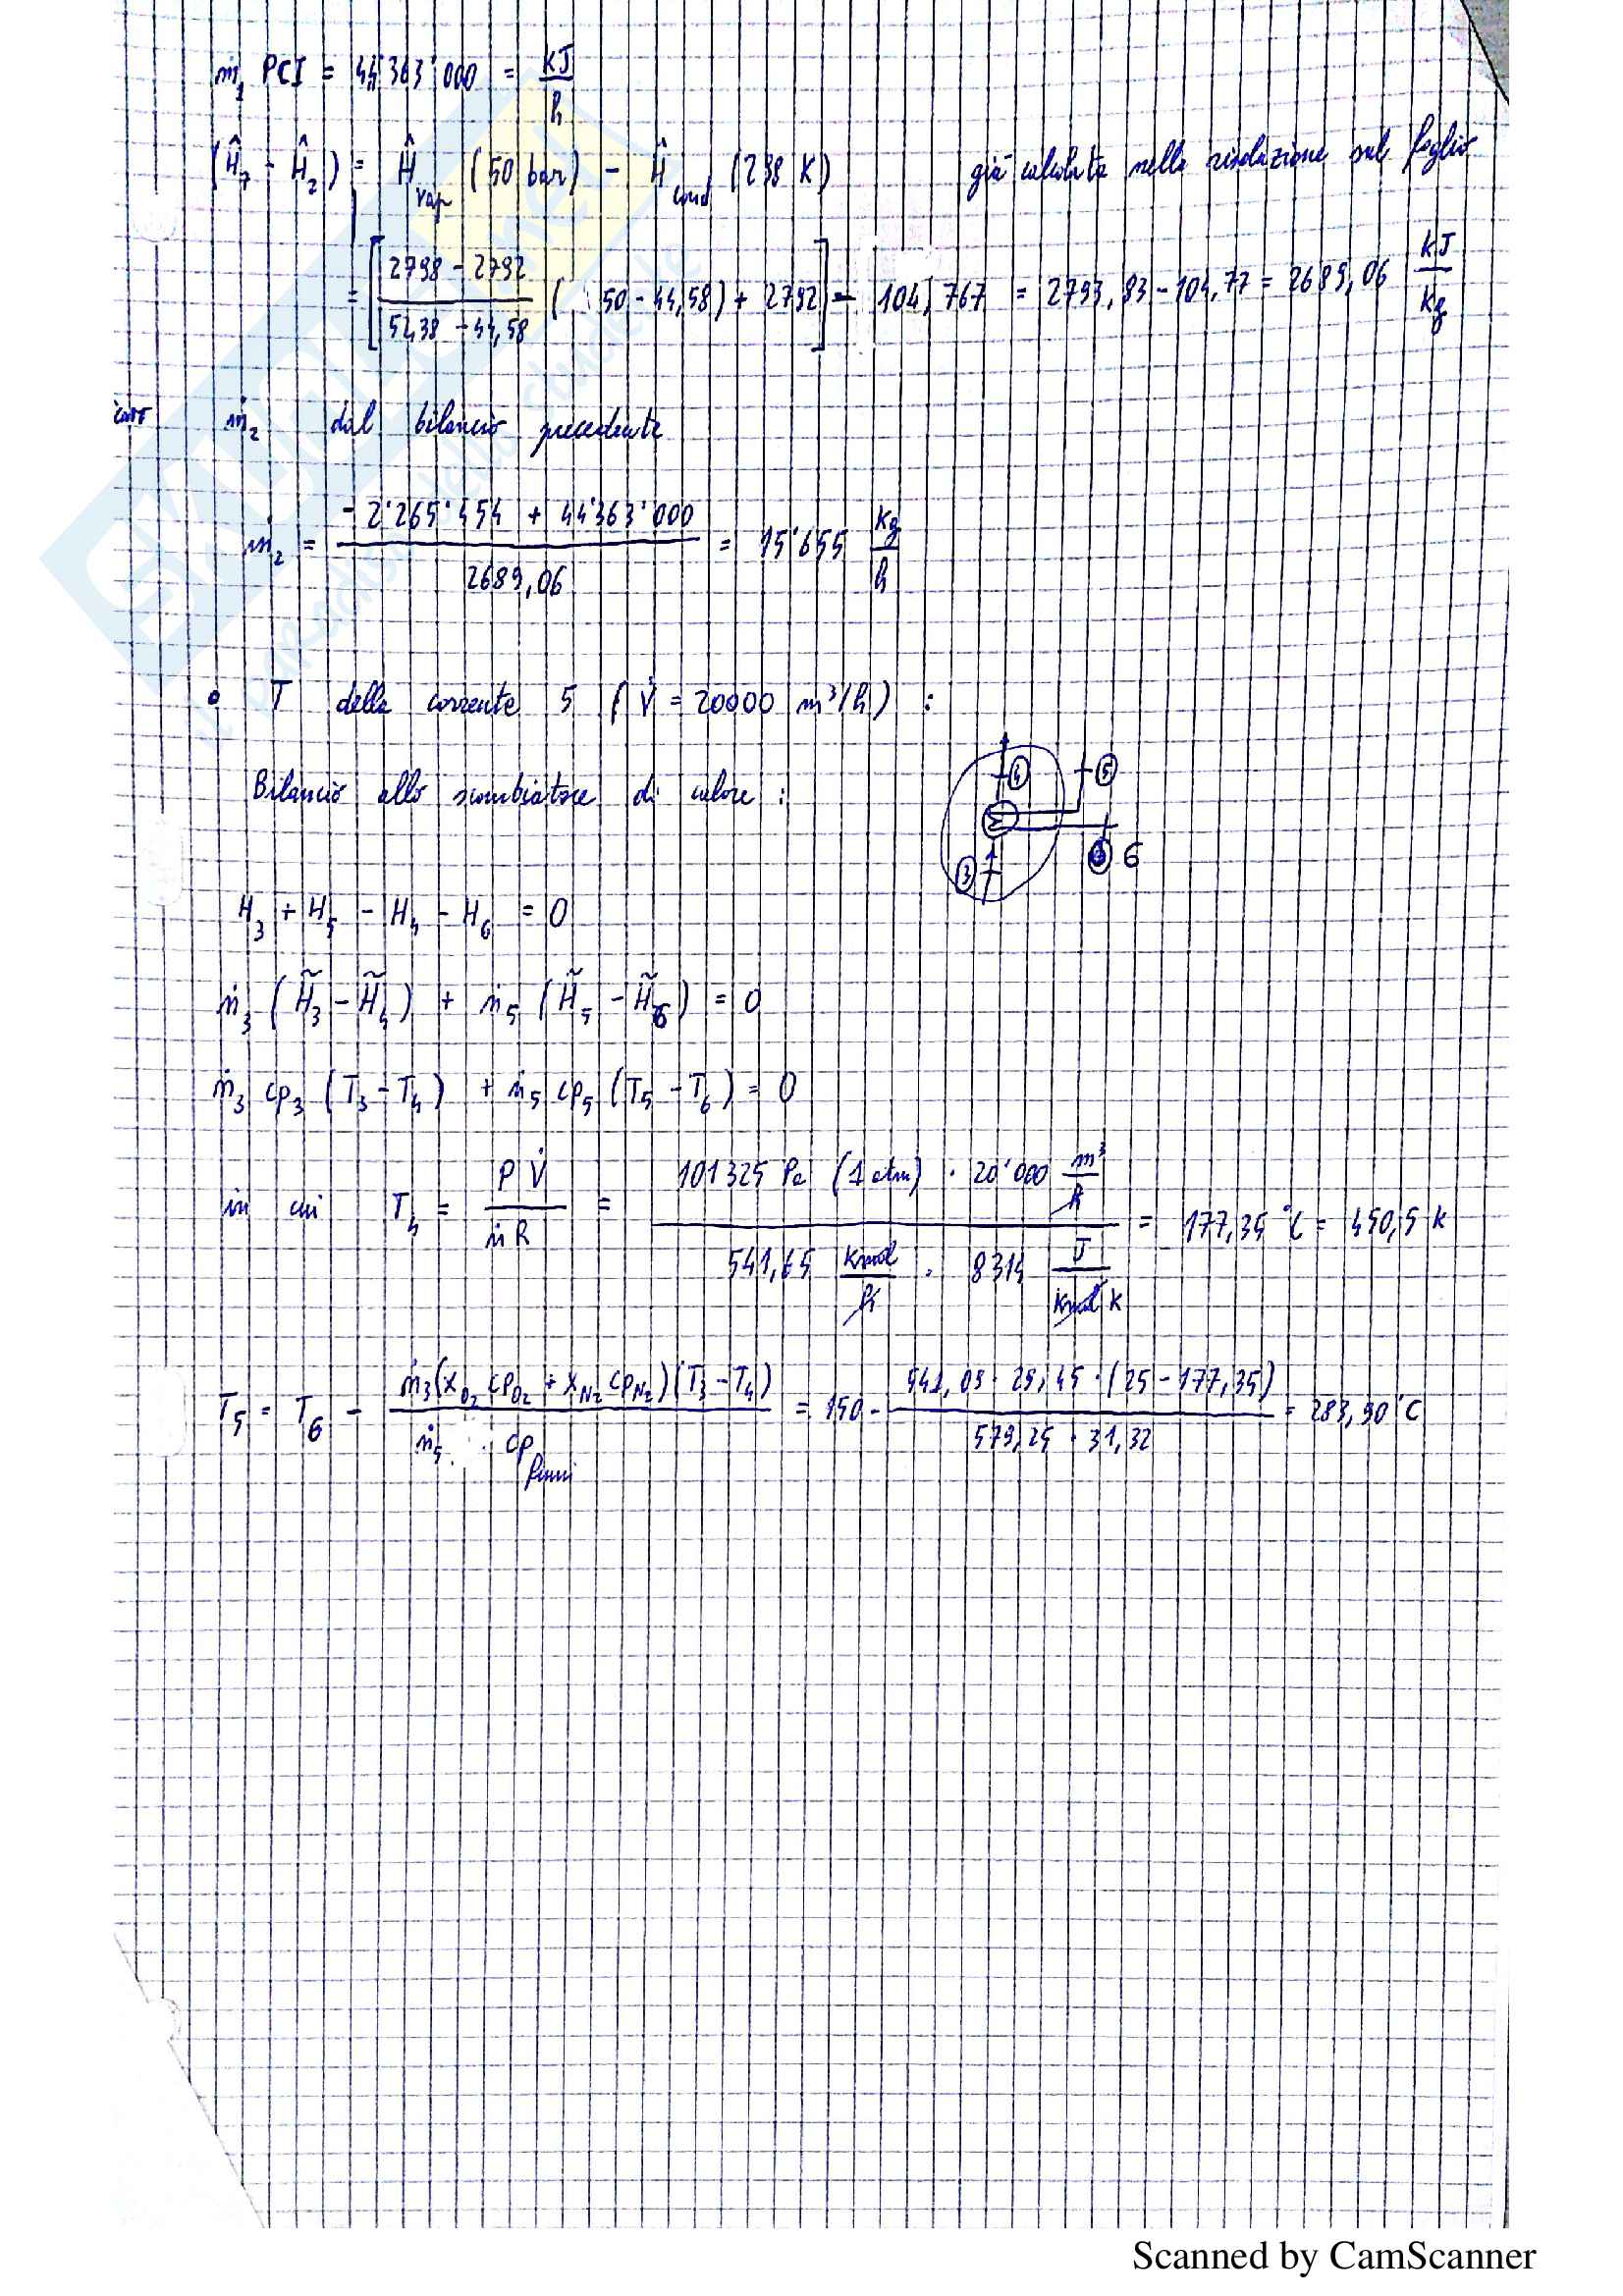 ṁ₁ PCI = 44'363'000 = kJ/h
(Ĥ₇ - Ĥ₂) = Ĥvap (50 bar) - Ĥcond (298 K) già calcolata nella risoluzione sul foglio
= [(2798 - 2792)/(52,38 - 44,58) (50 - 44,58) + 2792] - 104,767 = 2793,83 - 104,77 = 2689,06 kJ/kg
ṁ₂ dal bilancio precedente
ṁ₂ = (-2'265'454 + 44'363'000)/2689,06 = 15'655 kg/h
• T della corrente 5 (V̇ = 20000 m³/h) :
Bilancio allo scambiatore di calore :
4 5
3 6
H₃ + H₅ - H₄ - H₆ = 0
ṅ₃ (H̃₃ - H̃₄) + ṅ₅ (H̃₅ - H̃₆) = 0
ṅ₃ cp₃ (T₃ - T₄) + ṅ₅ cp₅ (T₅ - T₆) = 0
in cui T₄ = PV̇/ṅR = (101325 Pa (1 atm) · 20'000 m³/h)/(541,65 kmol/h · 8314 J/kmol K) = 177,35 °C = 450,5 K
T₅ = T₆ - (ṅ₃ (xO₂ cpO₂ + xN₂ cpN₂)(T₃ - T₄))/(ṅ₅ · cp fumi) = 150 - (541,09 · 29,45 · (25 - 177,35))/(579,25 · 31,32) = 283,90 °C
Scanned by CamScanner